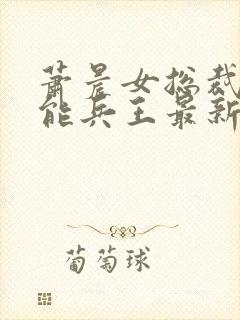 萧晨女总裁
能兵王最新
葡萄球